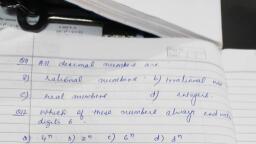 All decimal numbers are
a) rational numbers b) irrational nos
c) real numbers d) integers
Which of these numbers always end with
digits 6
a) 4ⁿ b) 2ⁿ c) 6ⁿ d) 8ⁿ